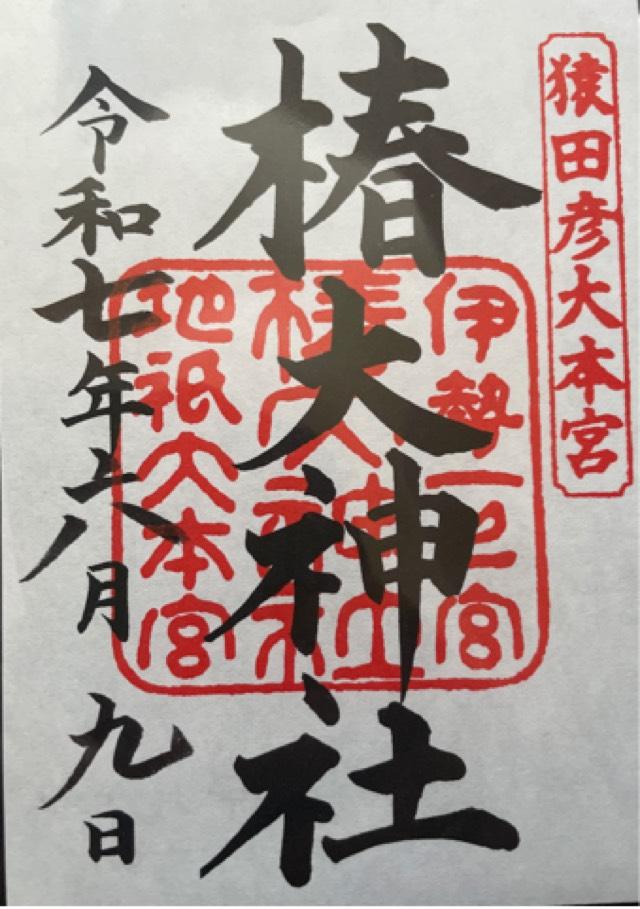 猿田彦大本宮
椿大神社
伊勢一之宮
椿大神社
地祇大本宮
令和七年八月九日